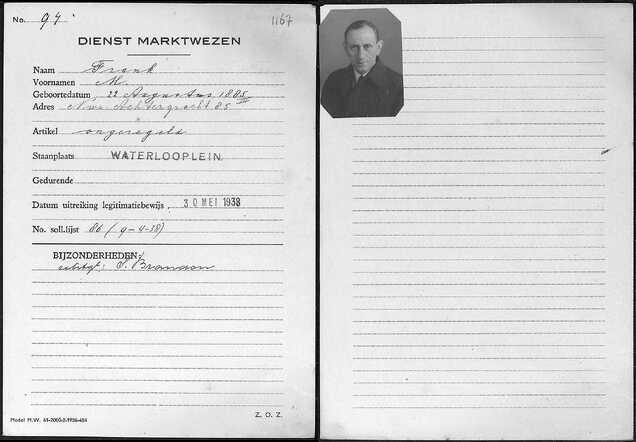 No. 94. 1167
DIENST MARKTWEZEN
Naam Frank
Voornamen M.
Geboortedatum 22 Augustus 1885
Adres Nwe Achtergracht 85 III
Artikel ongeregeld
Staanplaats WATERLOOPLEIN.
Gedurende
Datum uitreiking legitimatiebewijs. 30 MEI 1938
No. soll.lijst 86 (9-4-38)
BIJZONDERHEDEN:
echtgt: S. Brandon
Z. O. Z.
Model M.W.